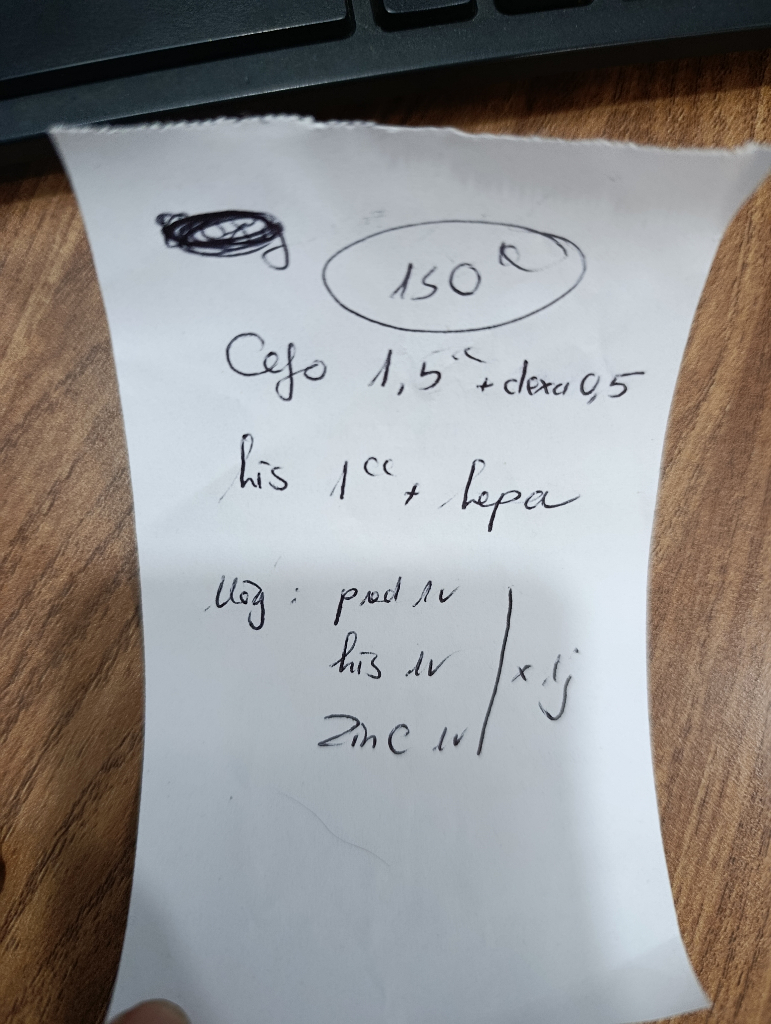 150 k
Cefo 1,5cc + dexa 0,5
his 1cc + hepa
Uống : pred 1v
his 1v
Zinc 1v
x 1j